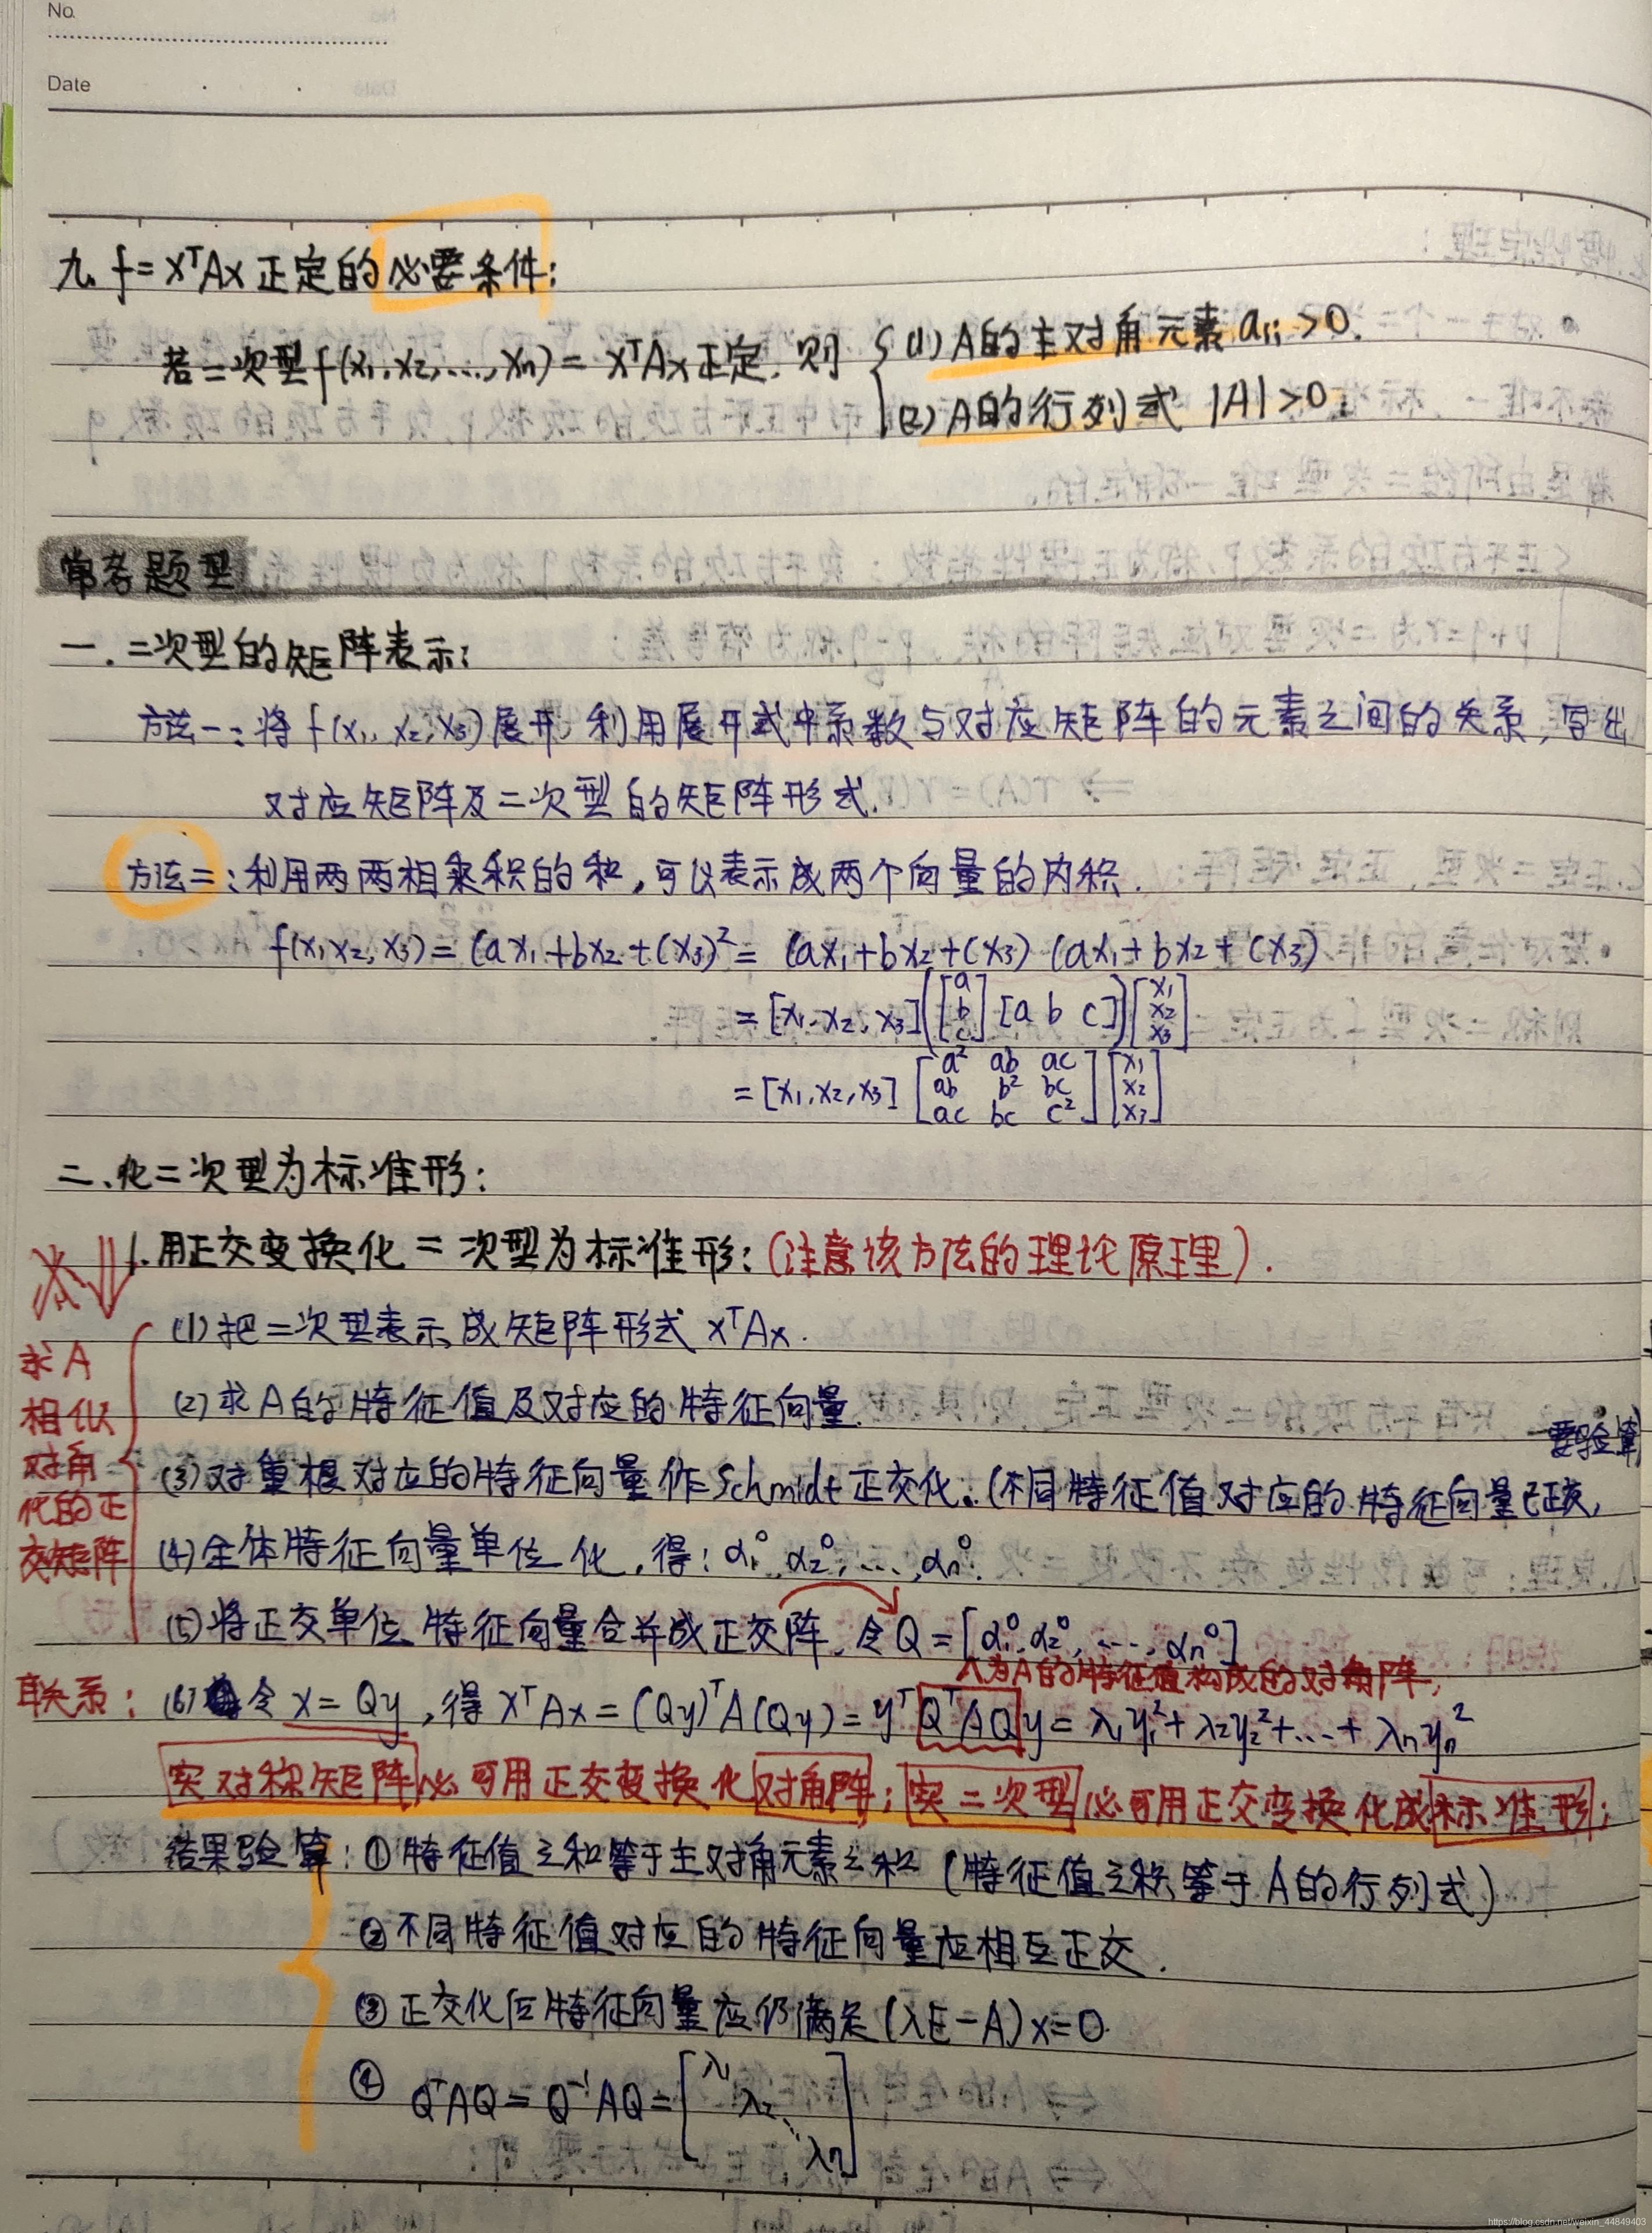 No.
Date
九. f=xᵀAx正定的必要条件:
若二次型f(x₁,x₂,...,xn)=xᵀAx正定,则 { (1) A的主对角元素aᵢᵢ>0.
(2) A的行列式 |A|>0;
常考题型
一.二次型的矩阵表示:
方法一:将f(x₁,x₂,x₃)展开,利用展开式中系数与对应矩阵的元素之间的关系,写出
对应矩阵及二次型的矩阵形式.
方法二:利用两两相乘积的和,可以表示成两个向量的内积.
f(x₁,x₂,x₃)=(ax₁+bx₂+cx₃)²=(ax₁+bx₂+cx₃)(ax₁+bx₂+cx₃)
=[x₁,x₂,x₃]([a b c]ᵀ[a b c])[x₁ x₂ x₃]ᵀ
=[x₁,x₂,x₃] [a² ab ac; ab b² bc; ac bc c²] [x₁ x₂ x₃]ᵀ
二.化二次型为标准形:
1.用正交变换化二次型为标准形:(注意该方法的理论原理).
求A
相似
对角
化的正
交矩阵
(1)把二次型表示成矩阵形式 xᵀAx.
(2)求A的特征值及对应的特征向量.
要验算
(3)对重根对应的特征向量作Schmidt正交化.(不同特征值对应的特征向量已正交,
(4)全体特征向量单位化,得:α₁⁰,α₂⁰,...,αn⁰.
(5)将正交单位特征向量合并成正交阵,令Q=[α₁⁰,α₂⁰,...,αn⁰]
Λ为A的特征值构成的对角阵;
联系:(6)令x=Qy,得xᵀAx=(Qy)ᵀA(Qy)=yᵀQᵀAQy=λ₁y₁²+λ₂y₂²+...+λnyn²
实对称矩阵必可用正交变换化对角阵;实二次型必可用正交变换化成标准形;
结果验算:①特征值之和等于主对角元素之和(特征值之积等于A的行列式)
②不同特征值对应的特征向量应相互正交.
③正交化后特征向量应仍满足(λE-A)x=0
④ QᵀAQ=Q⁻¹AQ=[λ₁ λ₂ ⋱ λn]
https://blog.csdn.net/weixin_44849403